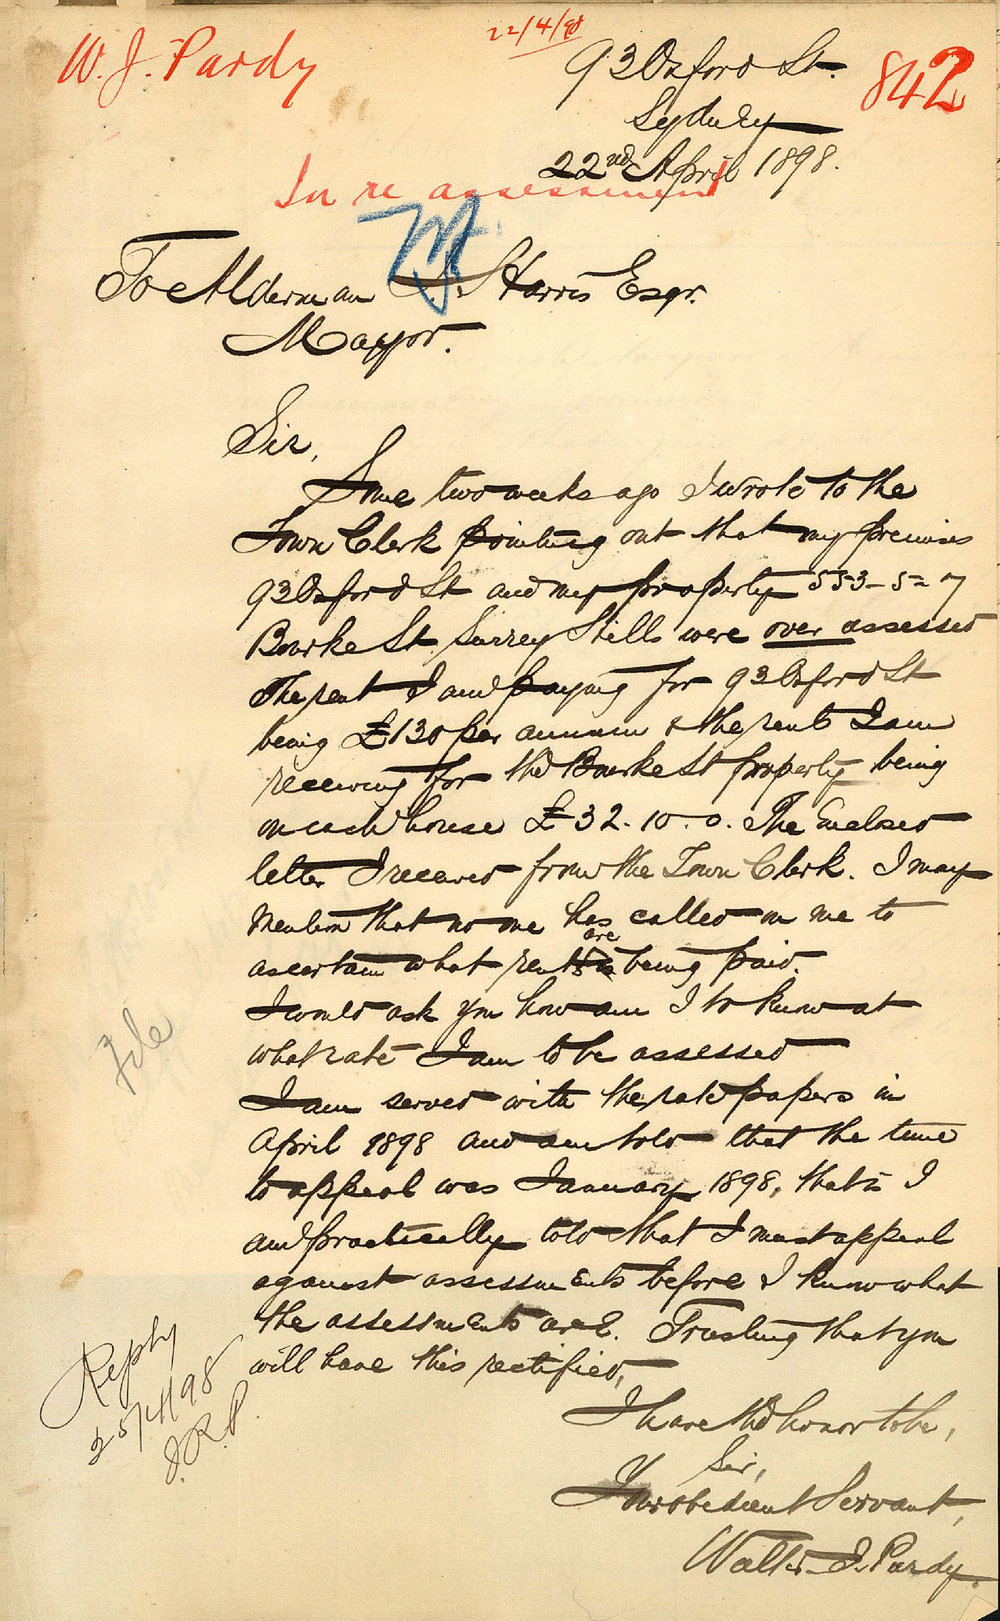 W. J. Pardy
22/4/98
842
93 Oxford St.
Sydney
22nd April 1898.
In re assessment
To Alderman I. S. Harris Esqr.
Mayor.
Sir,
Some two weeks ago I wrote to the
Town Clerk pointing out that my premises
93 Oxford St and my property 553-5-7
Bourke St Surrey Hills were over assessed
The rent I am paying for 93 Oxford St
being £130 per annum & the rents I am
receiving for the Bourke St property being
on each house £32.10.0. The Enclosed
letter I received from the Town Clerk. I may
Mention that no one has called on me to
ascertain what rents are being paid.
I would ask you how am I to know at
what rate I am to be assessed
I am served with the rate papers in
April 1898 and am told that the time
to appeal was January 1898, that is I
am practically told that I must appeal
against assessments before I know what
the assessments are. Trusting that you
will have this rectified,
I have the honor to be,
Sir,
Your obedient Servant,
Walter J. Pardy.
File
Reply
25/4/98
J.R.P.